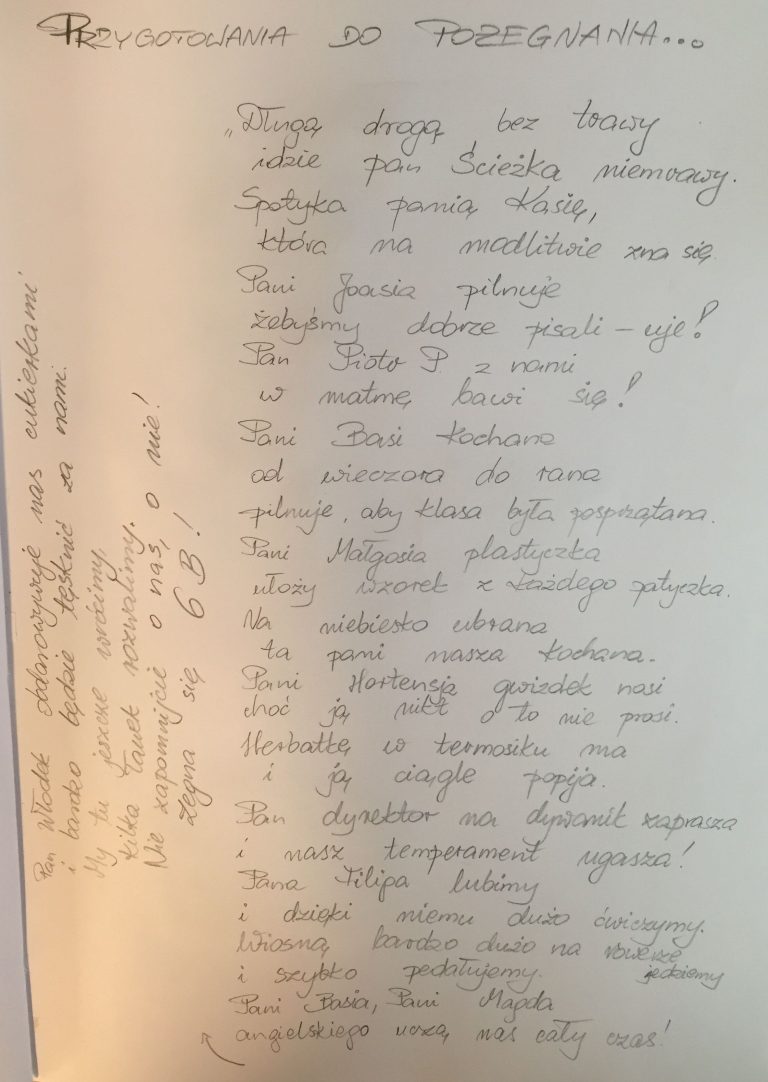 PRZYGOTOWANIA DO POŻEGNANIA...
„Długą drogą bez trawy
idzie pan Ścieżka niemrawy.
Spotyka panią Kasię,
która na modlitwie zna się
Pani Joasia pilnuje
żebyśmy dobrze pisali – uje!
Pan Piotr P. z nami
w matmę bawi się!
Pani Basi kochana
od wieczora do rana
pilnuje, aby klasa była posprzątana.
Pani Małgosia plastyczka
ułoży wzorek z każdego patyczka.
Na niebiesko ubrana
ta pani nasza kochana.
Pani Hortensja gwizdek nosi
choć ją nikt o to nie prosi.
Herbatkę w termosiku ma
i ją ciągle popija.
Pan dyrektor na dywanik zaprasza
i nasz temperament ugasza!
Pana Filipa lubimy
i dzięki niemu dużo ćwiczymy.
Wiosną bardzo dużo na rowerze jedziemy
i szybko pedałujemy.
Pani Basia, Pani Magda
angielskiego uczą nas cały czas!
Pan Włodek obdarowywuje nas cukierkami
i bardzo będzie tęsknić za nami.
My tu jeszcze wrócimy,
kilka ławek rozwalimy.
Nie zapomnijcie o nas, o nie!
Żegna się 6 B!